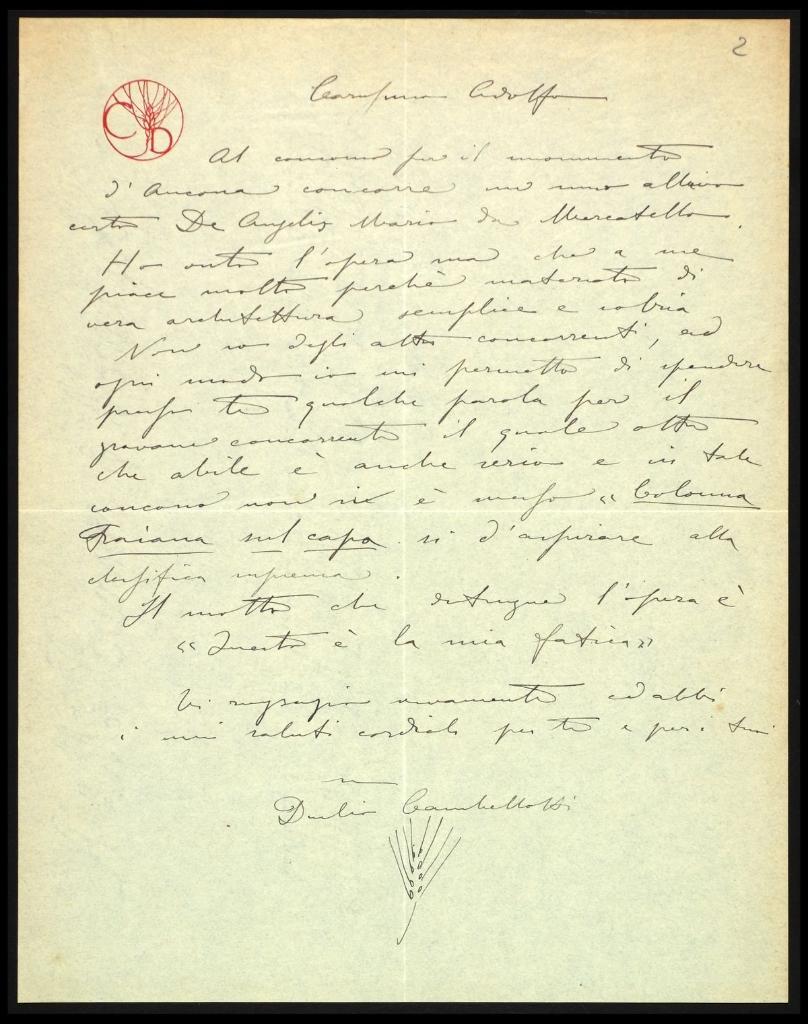 2
CD
Carissimo Adolfo
Al concorso per il monumento
d'Ancona concorre un mio allievo
certo De Angelis Mario da Mercatello.
Ho visto l'opera sua che a me
piace molto perchè materiata di
vera architettura semplice e sobria
Non so degli altri concorrenti, ad
ogni modo io mi permetto di spendere
presso te qualche parola per il
giovane concorrente il quale oltre
che abile è anche serio e in tale
concorso non si è messo « Colonna
Traiana sul capo si d'aspirare alla
classifica suprema.
Il motto che distingue l'opera è
« Questa è la mia fatica »
Ti ringrazio vivamente ed abbi
i miei saluti cordiali per te e per i tuoi
Duilio Cambellotti